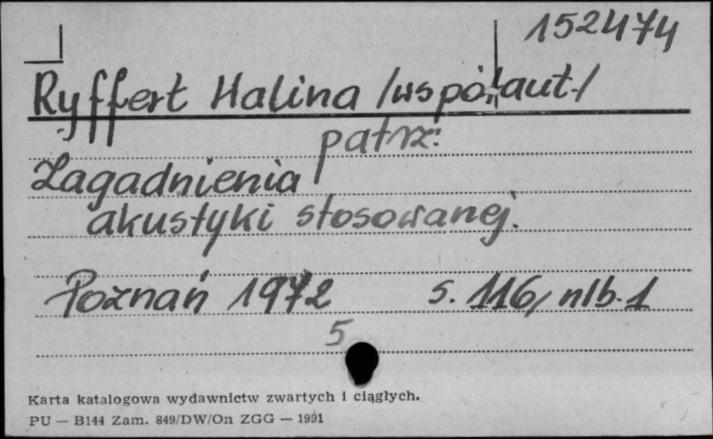 152474
Ryffert Halina /współaut./
patrz:
Zagadnienia
akustyki stosowanej.
Poznań 1972 s. 116, nlb. 1
5
Karta katalogowa wydawnictw zwartych i ciągłych.
PU — B144 Zam. 849/DW/On ZGG — 1991